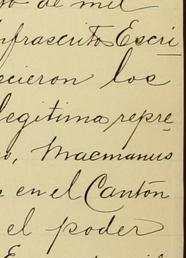 so de mil
nfrascrito Escri
cieron los
legitima repre
o, Macmanus
s en el Cantón
el poder